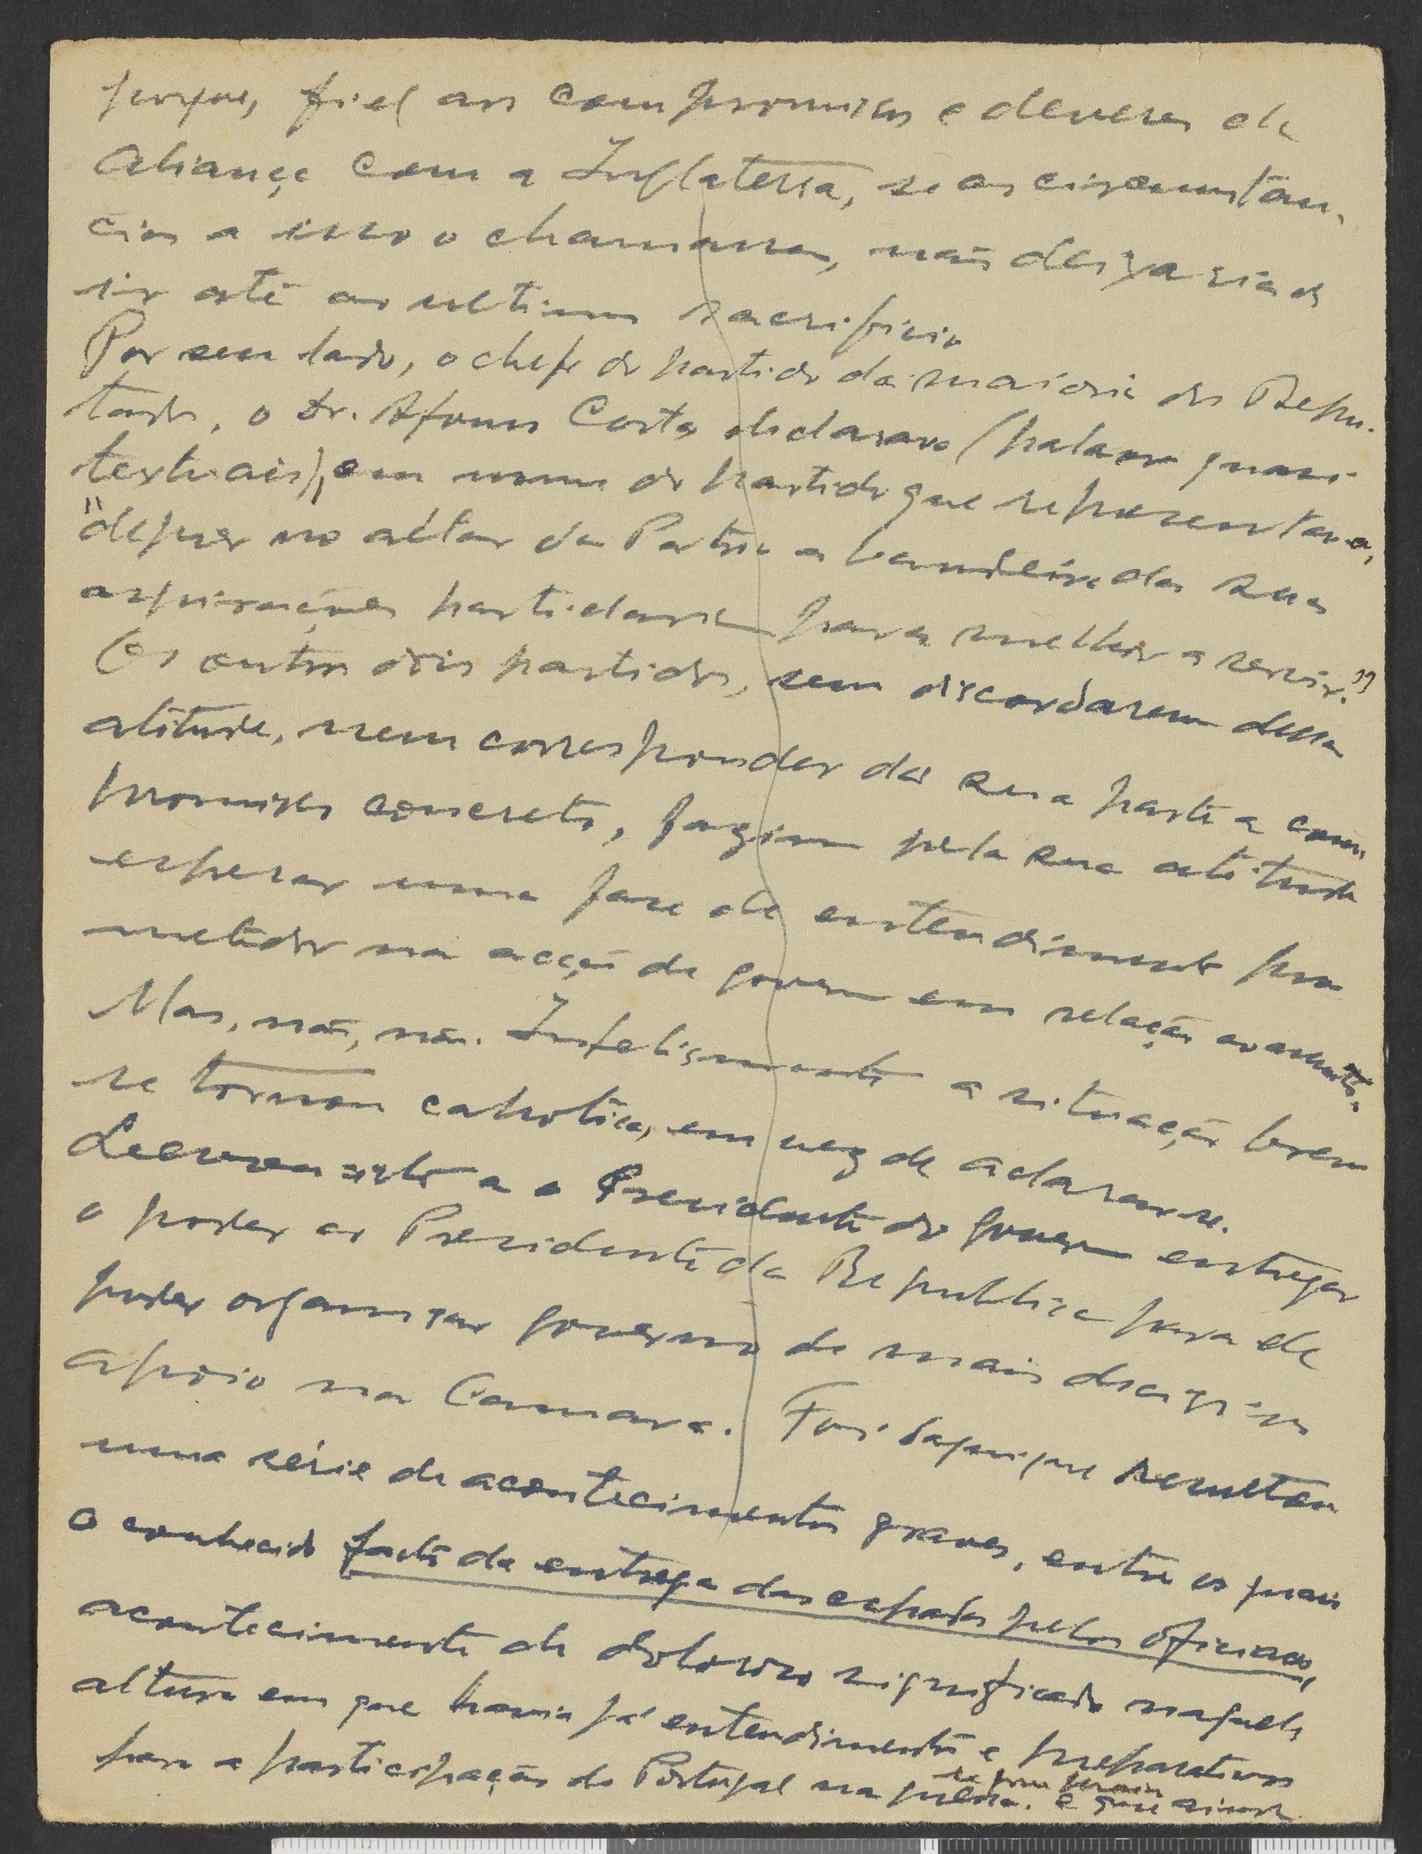 porque, fiel aos compromissos e deveres de
aliança com a Inglaterra, se as circumstan-
cias a isso o chamassem, não deixaria de
ir até ao ultimo sacrificio
Por seu lado, o chefe do partido da maioria dos Depu-
tados, o Dr. Afonso Costa declarava (palavras quasi
textuais), em nome do partido que representava,
"depor no altar da Patria a bandeira das suas
aspirações partidarias para melhor a servir."
Os outros dois partidos, sem discordarem dessa
atitude, nem corresponder da sua parte a com-
promissos concretos, faziam pela sua atitude
esperar uma fase de entendimento pro
metedor na acção do governo em relação ao assunto.
Mas, não, não. Infelizmente a situação breve
se tornou cahotica, em vez de aclarar-se.
Levou isto a o Presidente do governo entregar
o poder ao Presidente da Republica para ele
poder organizar governo de mais decisivo
apoio na Camara. Foi daqui que resultou
uma série de acontecimentos graves, entre os quais
o conhecido facto da entrega das espadas pelos oficiaes,
acontecimento de doloroso significado naquela
altura em que havia já entendimentos e preparativos
para a participação de Portugal na guerra. e que ainda